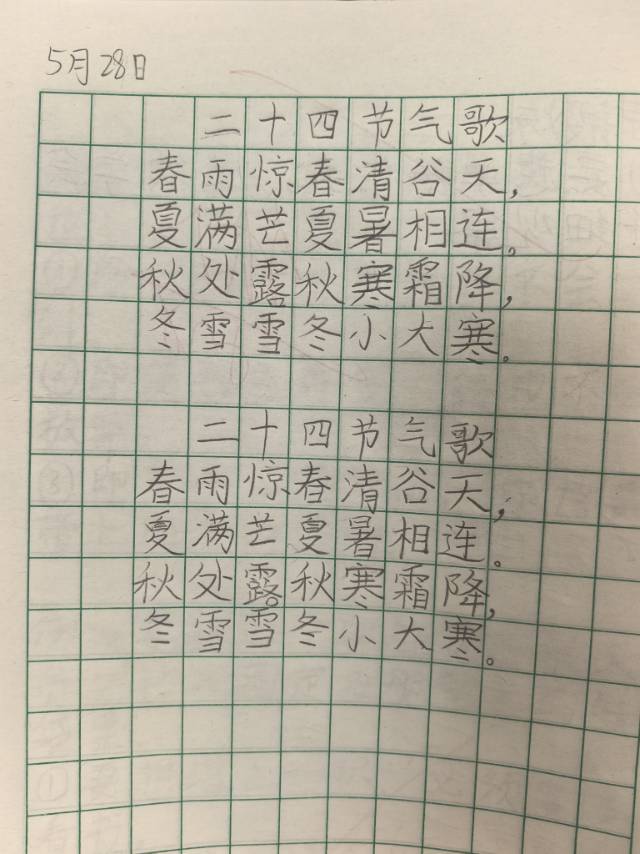 5月28日
二十四节气歌
春雨惊春清谷天,
夏满芒夏暑相连。
秋处露秋寒霜降,
冬雪雪冬小大寒。
二十四节气歌
春雨惊春清谷天,
夏满芒夏暑相连。
秋处露秋寒霜降,
冬雪雪冬小大寒。